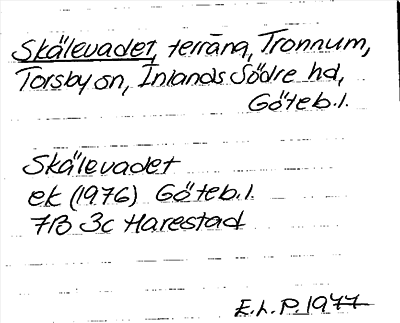 Skälevadet, terräng, Tronnum,
Torsby sn, Inlands Södre hd,
Göteb. l.
Skälevadet
ek (1976) Göteb. l.
7B 3c Harestad
E. L. P. 1977